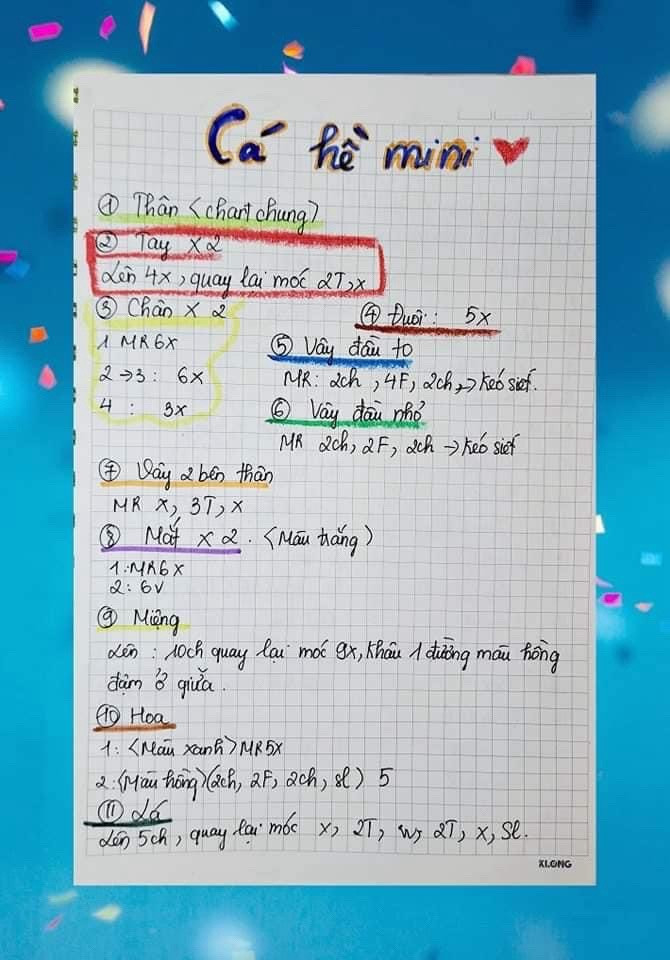 Cá hề mini
① Thân <chart chung>
② Tay x 2
Lên 4x, quay lại móc 2T, x
③ Chân x 2
1 MR6x
2 → 3 : 6x
4 : 3x
④ Đuôi : 5x
⑤ Vây đầu to
MR: 2ch, 4F, 2ch, → Kéo siết.
⑥ Vây đầu nhỏ
MR 2ch, 2F, 2ch → Kéo siết
⑦ Vây 2 bên thân
MR x, 3T, x
⑧ Mắt x 2. <Màu trắng>
1: MR6x
2: 6V
⑨ Miệng
Lên : 10ch quay lại móc 9x, Khâu 1 đường màu hồng
đậm ở giữa.
⑩ Hoa
1: <Màu xanh> MR5x
2: <Màu hồng> (2ch, 2F, 2ch, sl) 5
⑪ Lá
Lên 5ch, quay lại móc x, 2T, w, 2T, x, Sl.
KLONG